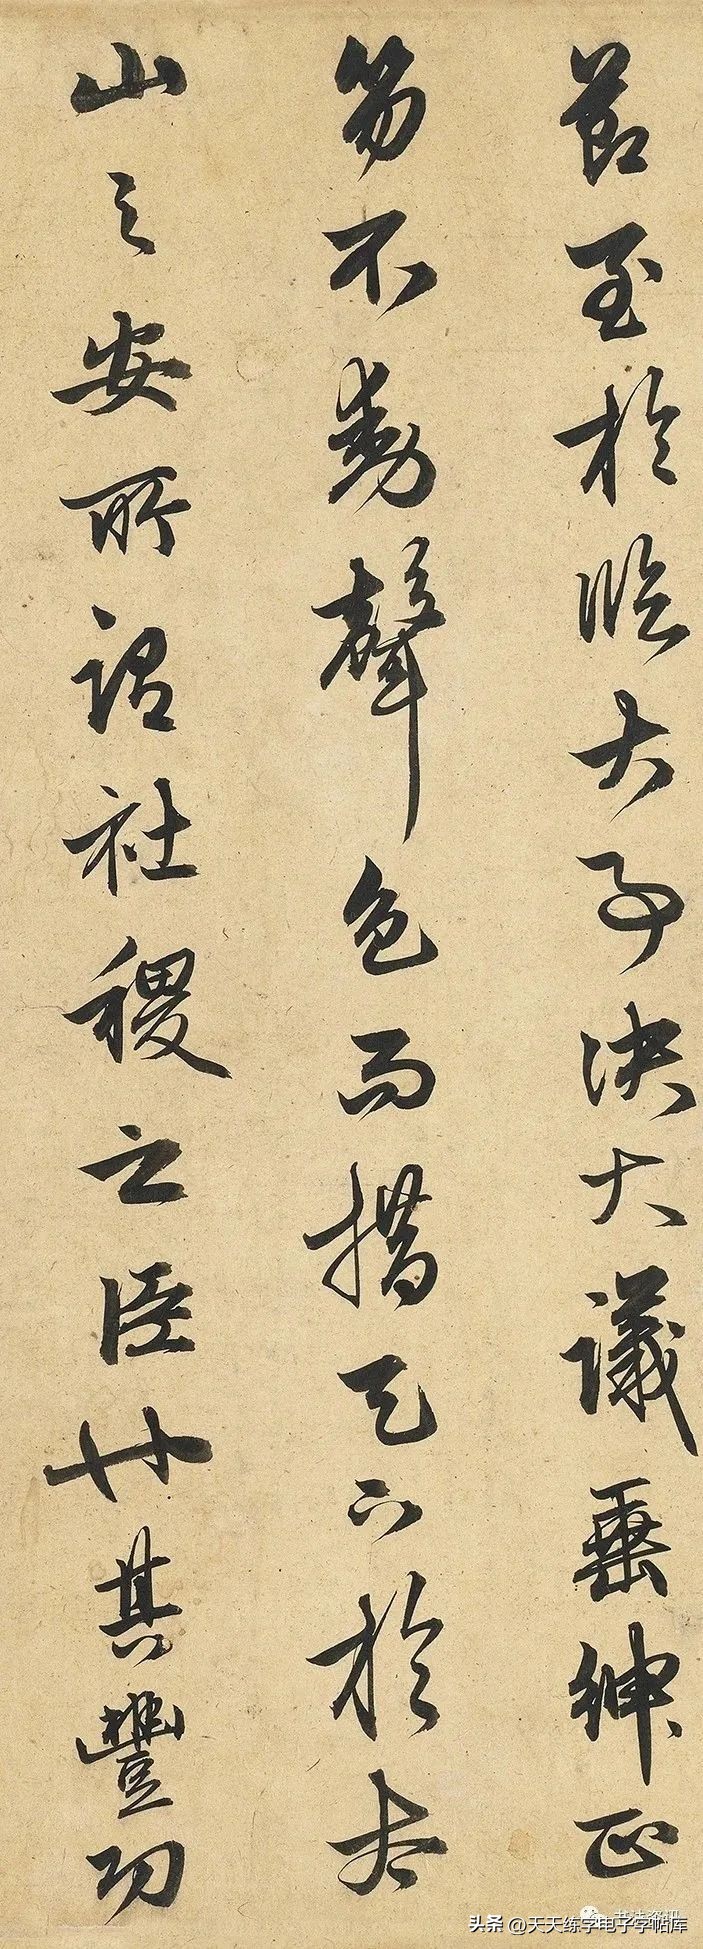 節至於臨大事決大議垂紳正
笏不動聲色而措天下於太
山之安可謂社稷之臣矣其豐功
头条 @天天练字电子字帖库